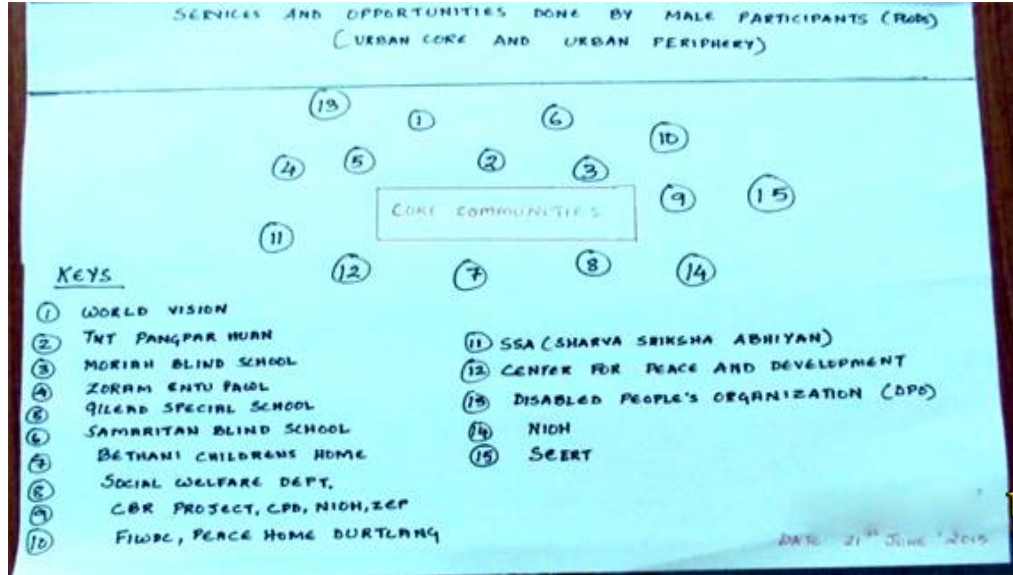 SERVICES AND OPPORTUNITIES DONE BY MALE PARTICIPANTS
(URBAN CORE AND URBAN PERIPHERY)
13
1
6
10
4
5
2
3
9
15
CORE COMMUNITIES
11
12
7
8
14
KEYS
1 WORLD VISION
2 TNT PANGPAR HUAN
3 MORIAH BLIND SCHOOL
4 ZORAM ENTU PAWL
5 GILEAD SPECIAL SCHOOL
6 SAMARITAN BLIND SCHOOL
7 BETHANI CHILDRENS HOME
8 SOCIAL WELFARE DEPT,
9 CBR PROJECT, CPD, NIOH, ZEP
10 PEACE HOME DURTLANG
11 SSA (SHARVA SHIKSHA ABHIYAN)
12 CENTER FOR PEACE AND DEVELOPMENT
13 DISABLED PEOPLE'S ORGANIZATION (DPO)
14 NIOH
15 SCERT
DATE 21st June '2015